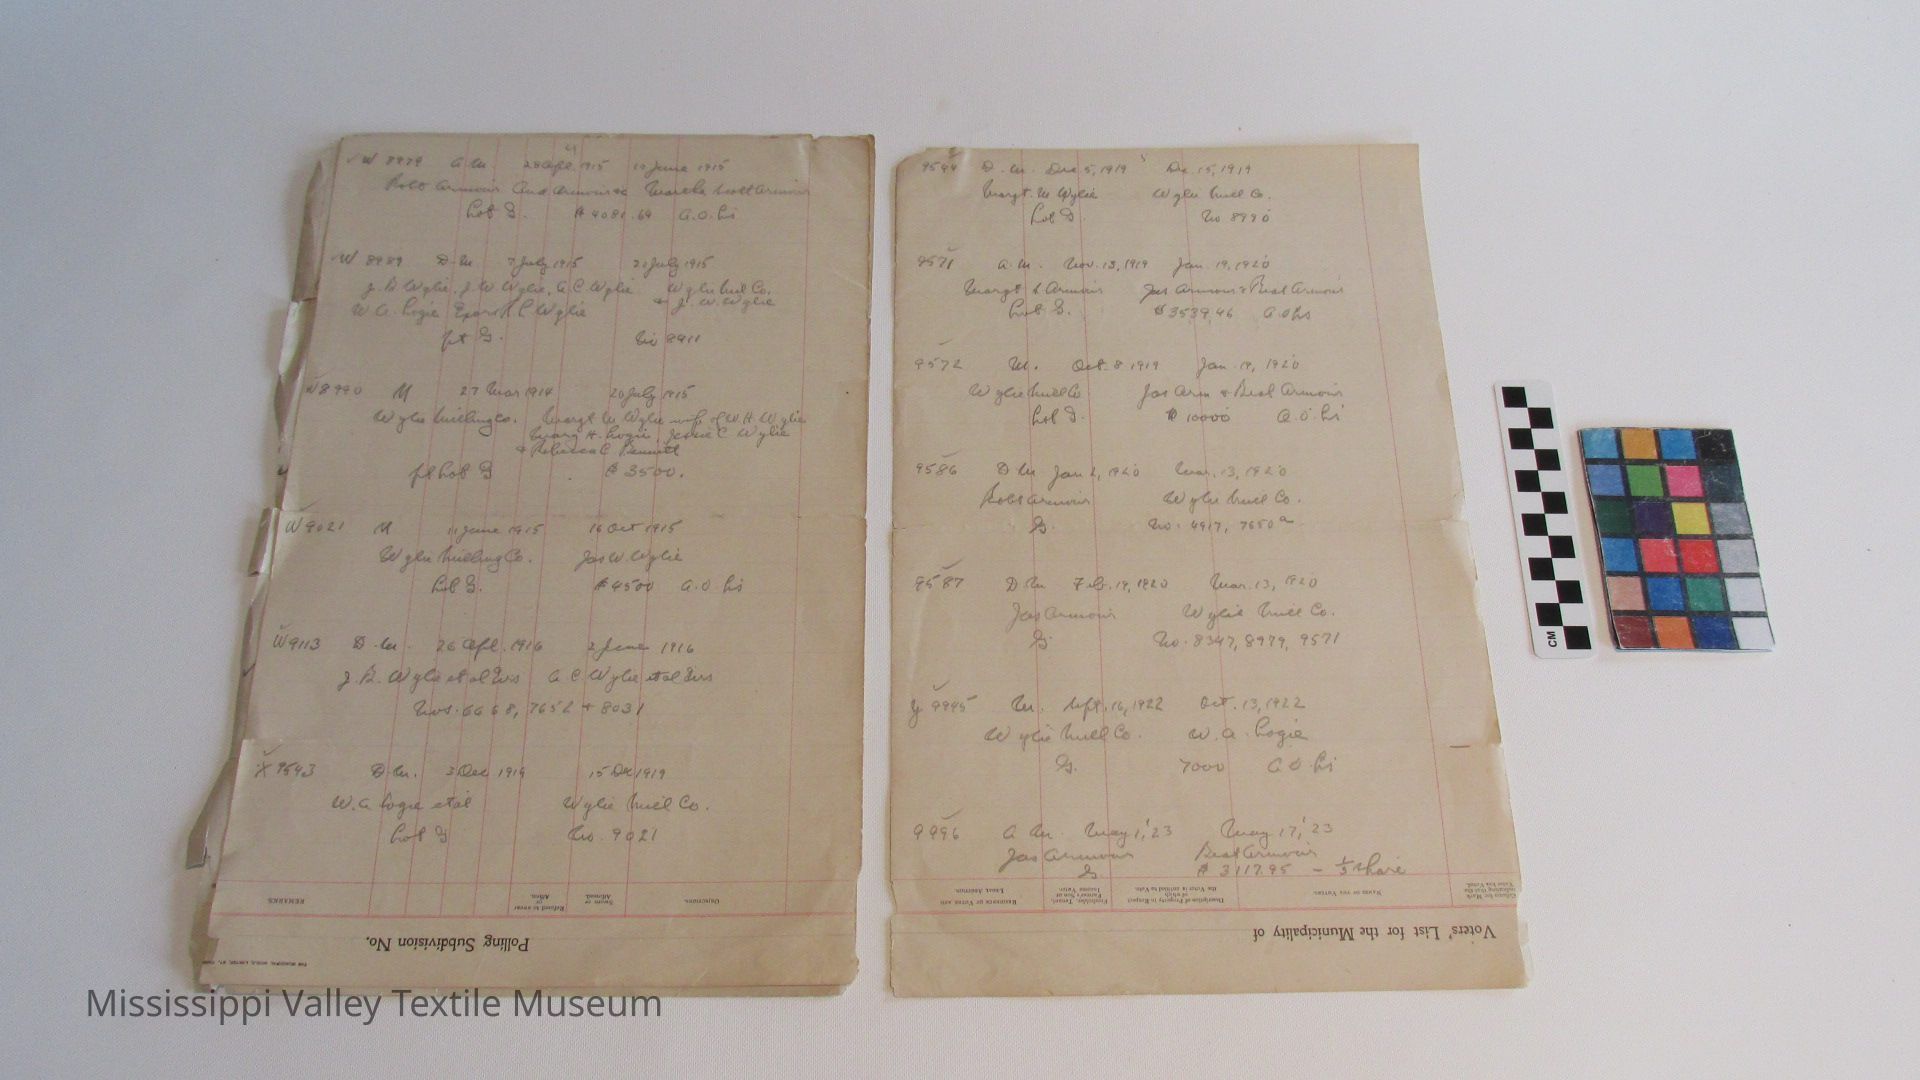 W 8979 A.M. 28 Apl. 1915 10 June 1915
Robt Armour and Armour & Martha Scott Armour
Lot G. $4081.64 A.O. Ls
W 8989 D.M. 7 July 1915 20 July 1915
J.B. Wylie, J.W. Wylie, A.C. Wylie Wylie Mill Co.
W.A. Logie Exors & J.W. Wylie
pt G. No 8911
W 8990 M 27 Mar 1914 20 July 1915
Wylie Milling Co. Margt M Wylie wife of W.H. Wylie
Mary H. Logie, Jessie C Wylie
& Rebecca C Bennett
pt Lot G $3500.
W 9021 M 11 June 1915 16 Oct 1915
Wylie Milling Co. Jas W. Wylie
Lot G. $4500 A.O. Ls
W 9113 D.M. 26 Apl. 1916 2 June 1916
J.B. Wylie et al A C Wylie et al
Nos. 6668, 7652 & 8031
X 9543 D.M. 3 Dec 1919 15 Dec 1919
W.A. Logie et al Wylie Mill Co.
Lot G No. 9021
REMARKS. OBJECTIONS.
Polling Subdivision No.
9544 D.M. Dec 5, 1919 Dec 15, 1919
Margt. M Wylie Wylie Mill Co.
Lot G. No 8990
9571 A.M. Nov. 13, 1919 Jan. 19, 1920
Margt S Armour Jas Armour & Beat Armour
Lot G. $3539.46 A.O. Ls
9572 M. Oct. 8 1919 Jan. 19, 1920
Wylie Mill Co Jas Arm & Beat Armour
Lot G. $10000 A.O. Ls
9586 D M Jan 2, 1920 Mar. 13, 1920
Robt Armour Wylie Mill Co.
G. No. 4917, 7650a
9587 D M Feb. 19, 1920 Mar. 13, 1920
Jas Armour Wylie Mill Co.
G. No. 8347, 8979, 9571
Y 9995 M. Sept. 16, 1922 Oct. 13, 1922
Wylie Mill Co. W.A. Logie
G. 7000 A.O. Ls
9996 A M. May 1, '23 May 17, '23
Jas Armour Beat Armour
G $3117.95 - 1/3 share
Voters' List for the Municipality of
CM
Mississippi Valley Textile Museum